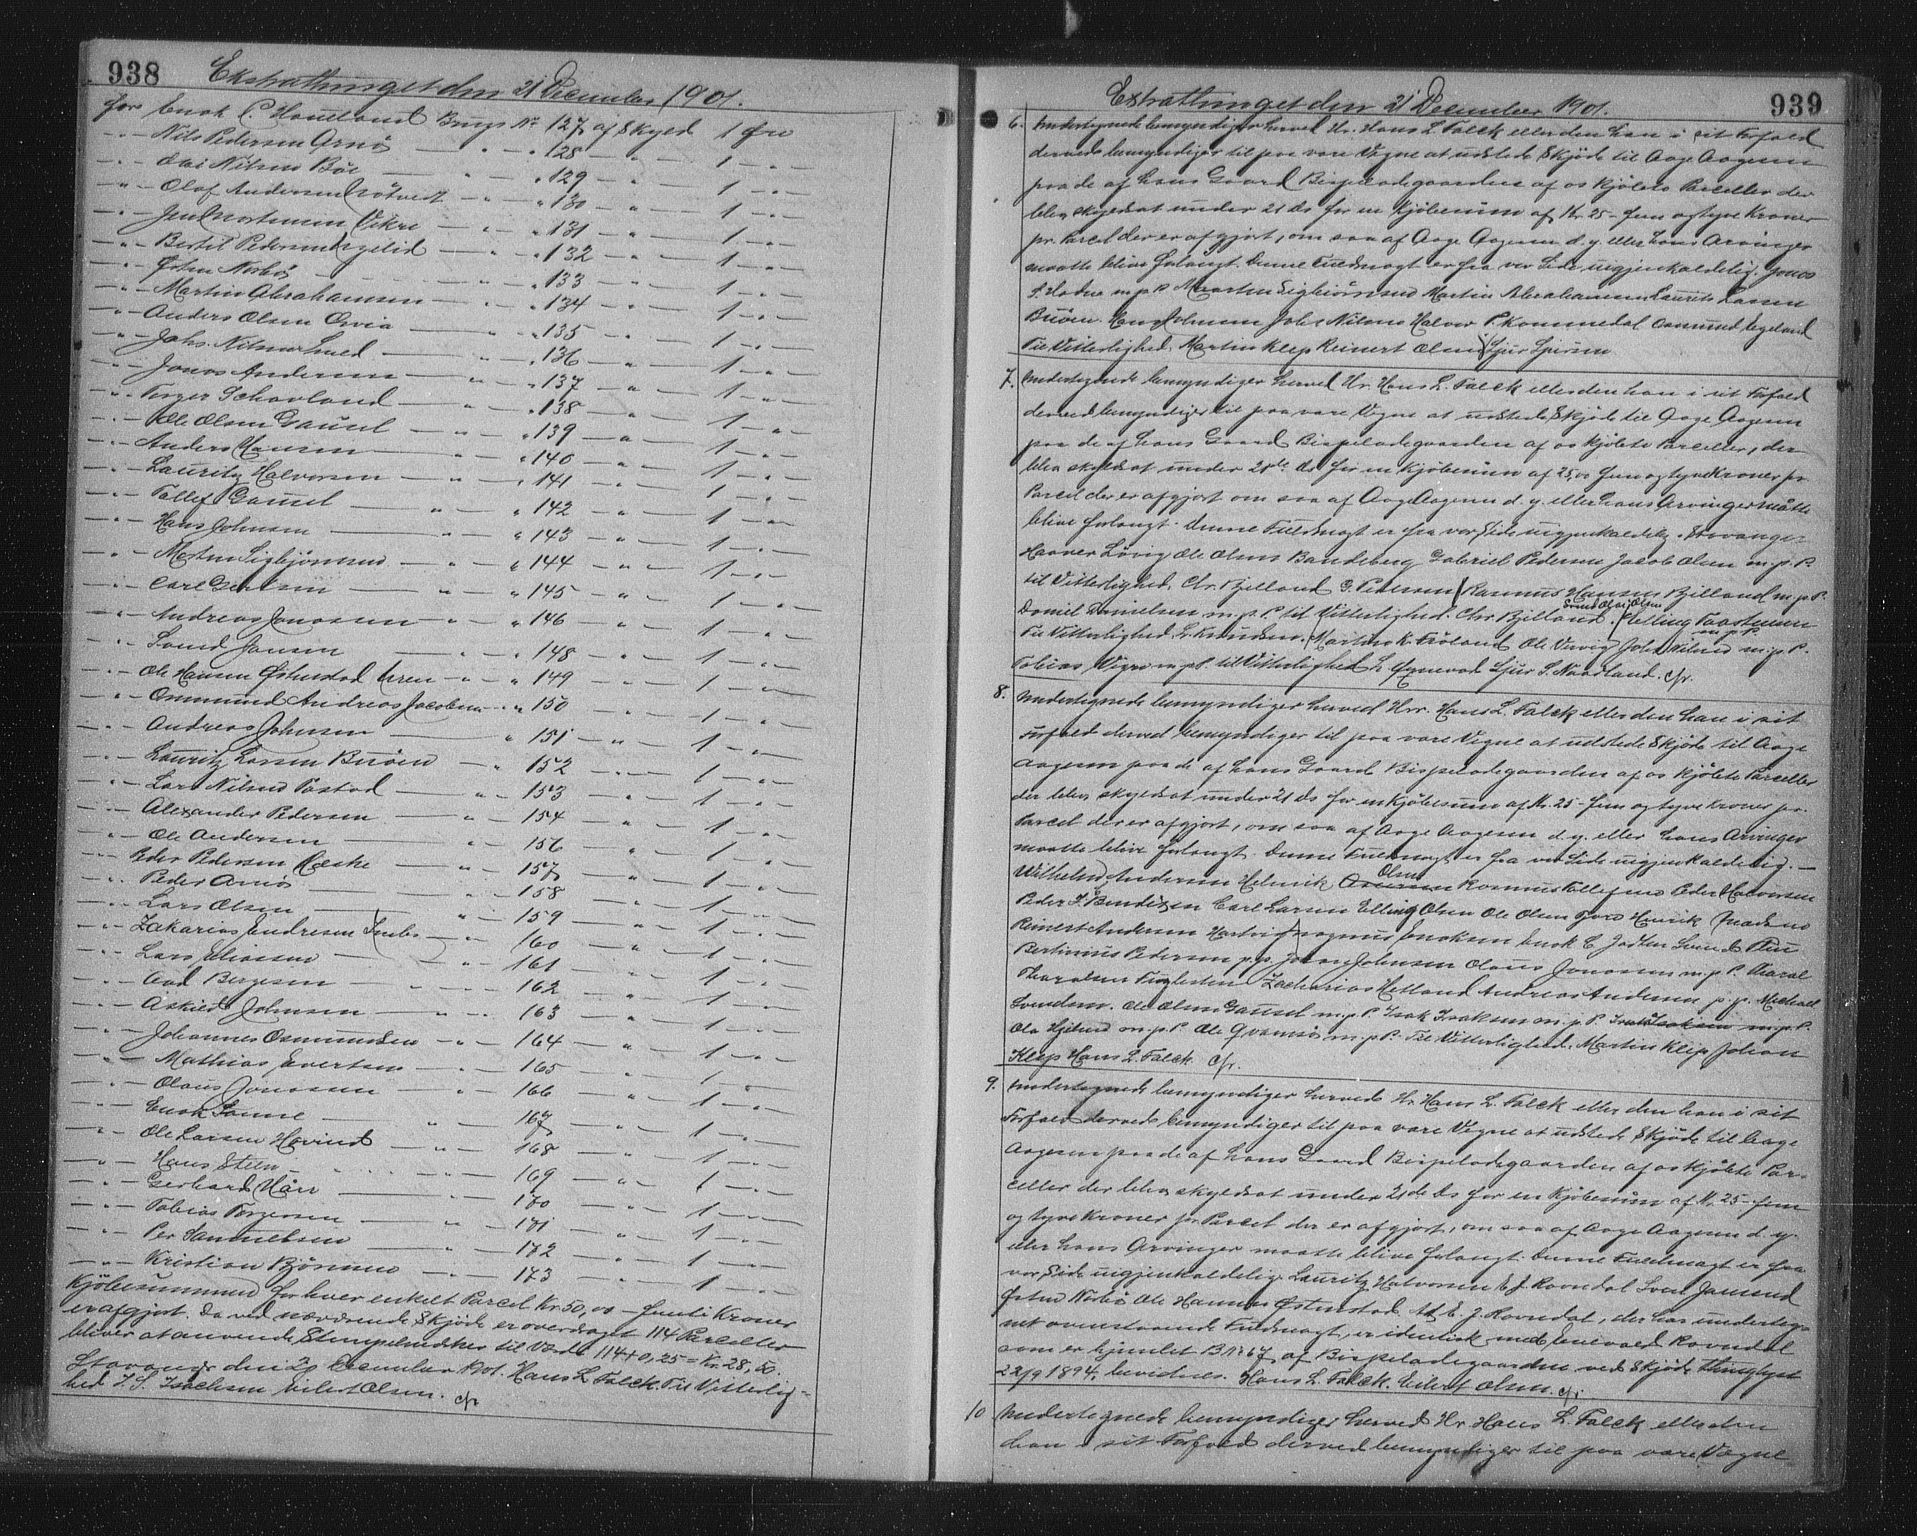 938
Ekstrathinget den 21 December 1901.
for Enok C. Houeland Brugs No 127 af Skyld 1 Øre
" Nils Pedersen Arnø " 128 " 1 "
" Obi Nilsen Bøe " 129 " 1 "
" Olaf Andersen " 130 " 1 "
" Jens Mortensen Vikre " 131 " 1 "
" Bertil Pedersen " 132 " 1 "
" Østen Norbø " 133 " 1 "
" Martin Abrahamsen " 134 " 1 "
" Anders Olsen " 135 " 1 "
" Johs. Nilsen Lund " 136 " 1 "
" Jonas Andersen " 137 " 1 "
" Torger Schavland " 138 " 1 "
" Ole Olsen Gausel " 139 " 1 "
" Anders Hansen " 140 " 1 "
" Lauritz Halvorsen " 141 " 1 "
" Tollef Gausel " 142 " 1 "
" Hans Johnsen " 143 " 1 "
" Morten Sigbjørnsen " 144 " 1 "
" Carl Gertsen " 145 " 1 "
" Andreas Jonassen " 146 " 1 "
" Svend Jansen " 148 " 1 "
" Ole Hansen Østenstad " 149 " 1 "
" Osmund Andreas Jacobsen " 150 " 1 "
" Andreas Johnsen " 151 " 1 "
" Lauritz Larsen Buøen " 152 " 1 "
" Lars Nilsen Tastad " 153 " 1 "
" Alexander Pedersen " 154 " 1 "
" Ole Andersen " 156 " 1 "
" Peder Pedersen Ræske " 157 " 1 "
" Peder Arnø " 158 " 1 "
" Lars Olsen " 159 " 1 "
" Zakarias Endresen " 160 " 1 "
" Lars Eliassen " 161 " 1 "
" Aad Bergesen " 162 " 1 "
" Askild Johnsen " 163 " 1 "
" Johannes Osmundsen " 164 " 1 "
" Mathias Evertsen " 165 " 1 "
" Olaus Jonassen " 166 " 1 "
" Enok Sømme " 167 " 1 "
" Ole Larsen Hovind " 168 " 1 "
" Hans Steen " 169 " 1 "
" Gerhard Hårr " 170 " 1 "
" Tobias Torgersen " 171 " 1 "
" Per Samuelsen " 172 " 1 "
" Kristian Bjørnsen " 173 " 1 "
Kjøbesummen for hver enkelt Parcel Kr. 50,00 – femti Kroner
er afgjort. Da ved nærværende Skjøde er overdraget 114 Parceller
bliver at anvende Stempelmærker til Værdi 114 + 0,25 = Kr. 28,50.
Stavanger den 20 December 1901. Hans L. Falck. Til Vitterlig-
hed T. S. Isachsen Eilert Olsen. cfr
939
Extrathinget den 21 December 1901.
6. Undertegnede bemyndiger herved Hr. Hans L. Falck eller den han i sit Forfald
derved bemyndiger til paa vore Vegne at udstede Skjøde til Aage Aagesen
paa de af hans Gaard Bispeladegaarden af os kjøbte Parceller der
blev skyldsat under 21 ds for en Kjøbesum af Kr. 25 – fem og tyve Kroner
pr. Parcel der er afgjort, om saa af Aage Aagesen d. y. eller hans Arvinger
maatte blive forlangt. Denne Fuldmagt er fra vor Side uigjenkaldelig. Jonas
m. p. P. Morten Sigbjørnsen Martin Abrahamsen Laurits Larsen
Buøen. Hans Johnsen Johs Nilsen Halvor P. Kommedal Osmund Egeland
Til Vitterlighed. Martin Klep Reinert Olsen Sjur Iversen
7. Undertegnede bemyndiger herved Hr. Hans L. Falck eller den han i sit Forfald
derved bemyndiger til paa vore Vegne at udstede Skjøde til Aage Aagesen
paa de af hans Gaard Bispeladegaarden af os kjøbte Parceller, der
blev skyldsat under 21de ds for en Kjøbesum af 25,00 fem og tyve Kroner pr.
Parcel der er afgjort om saa af Aage Aagesen d. y. eller hans Arvinger måtte
blive forlangt. Denne Fuldmagt er fra vor Side uigjenkaldelig. Stavanger
Haaver Løvig Ole Olsen Bandeberg Gabriel Pedersen Jacob Olsen m. p. P.
til Vitterlighed. Chr. Bjelland G. Pedersen Rasmus Hansen Bjelland m. p. P.
Daniel Danielsen m. p. P. til Vitterlighed. Chr Bjelland. Svend Olai Olsen Elling Taastesen
m. p. P.
Til Vitterlighed L. Knudsen. Martin K. Frøland Ole Vervig John Nilsen m. p. P.
Tobias Vigre m. p. P. til Vitterlighed L. Sjur S. Nordland. cfr.
8. Undertegnede bemyndiger herved Herr. Hans L. Falck eller den han i sit
Forfald derved bemyndiger til paa vore Vegne at udstede Skjøde til Aage
Aagesen paa de af hans Gaard Bispeladegaarden af os kjøbte Parceller
der blev skyldsat under 21 ds for en Kjøbesum af Kr. 25 – fem og tyve Kroner pr.
Parcel der er afgjort, om saa af Aage Aagesen d. y. eller hans Arvinger
maatte blive forlangt. Denne Fuldmagt er fra vor Side uigjenkaldelig. –
Wilhelm Andersen Helmik Olsen Rasmus Tollefsen Peder Halvorsen
Peder T. Bendixen Carl Larsen Elling Olsen Ole Olsen Tjora Henrik Madsen
Reinert Andersen Hartvig Magnus Enoksen Enok C. Jadten Svend
Bertinius Pedersen p. p. Johan Johnsen Olaus Jonassen m. p. P. Tharal
Tharalsen Fuglestein Zacharias Hetland Andreas Andersen p. p. Michael
Svendsen. Ole Olsen Gausel m. p. P. Isak Isaksen m. p. P. Isak Isaksen m. p. P.
Ola Hjelmed m. p. P. Ole Qvamsø m. p. P. Til Vitterlighed. Martin Klep Johan
Klep Hans L. Falck. cfr.
9. Undertegnede bemyndiger herved Hr. Hans L. Falck eller den han i sit
Forfald derved bemyndiger til paa vore Vegne at udstede Skjøde til Aage
Aagesen paa de af hans Gaard Bispeladegaarden af os kjøbte Par-
celler der blev skyldsat under 21de ds for en Kjøbesum af Kr. 25 – fem
og tyve Kroner pr. Parcel der er afgjort, om saa af Aage Aagesen d. y.
eller hans Arvinger maatte blive forlangt. Denne Fuldmagt er fra
vor Side uigjenkaldelig. Lauritz Halvorsen E. J. Ravndal Svend Jansen
Østen Norbø Ole Hansen Østenstad. At E. J. Ravndal, der har underteg-
net ovenstaaende Fuldmagt, er identisk med Enevald Ravndal
som er hjemlet B. No 67 af Bispeladegaarden ved Skjøde thinglyst
22/9 1894, bevidnes. Hans L. Falck. Eilert Olsen. cfr.
10 Undertegnede bemyndiger herved Hr. Hans L. Falck eller den
han i sit Forfald derved bemyndiger til paa vore Vegne